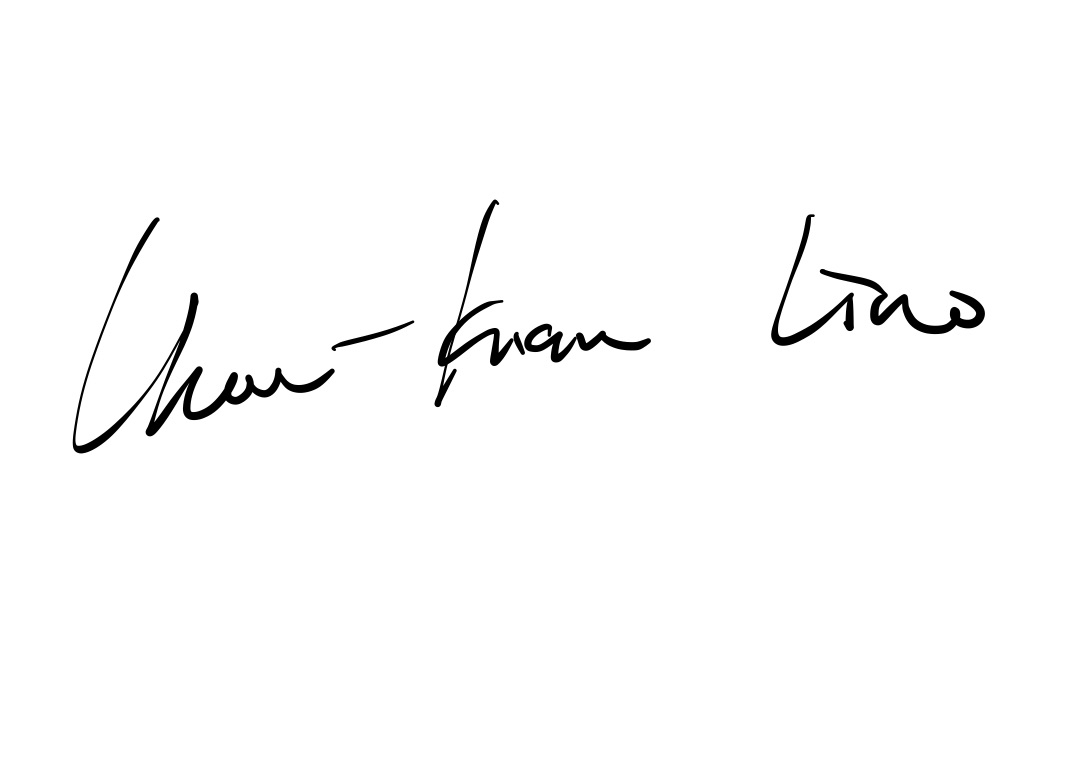 Chou-Kuan Liao